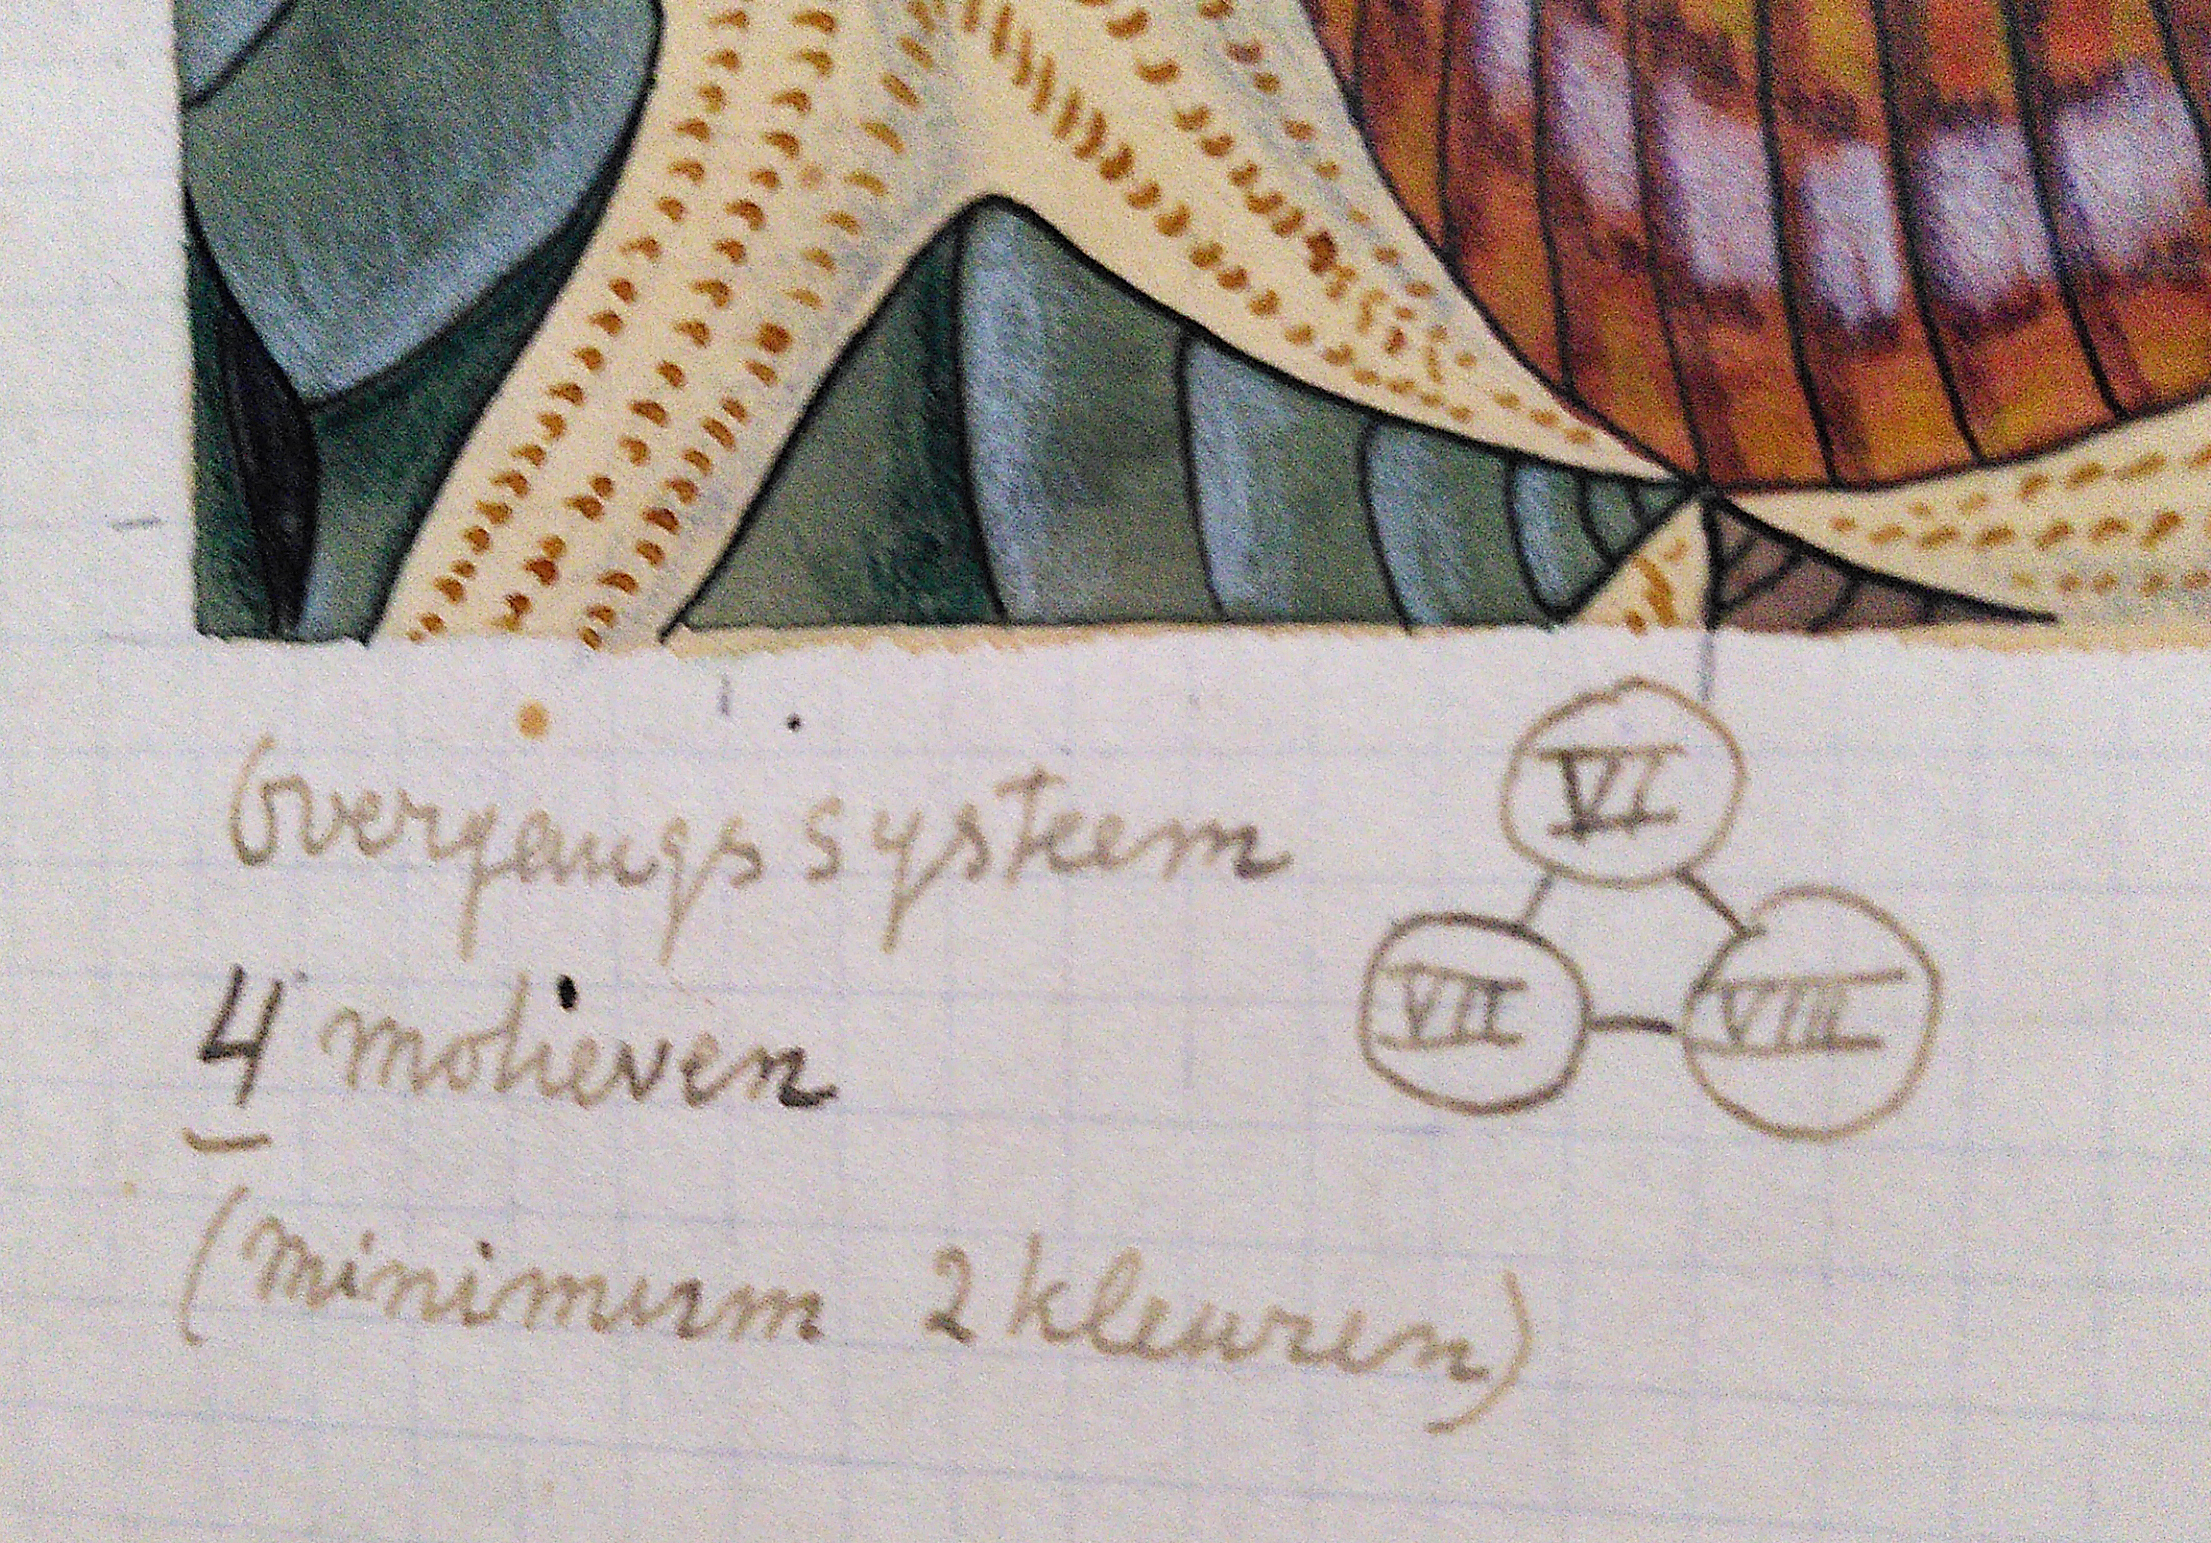 Overgangssysteem
4 motieven
(minimum 2 kleuren)
VI
VII
VIII